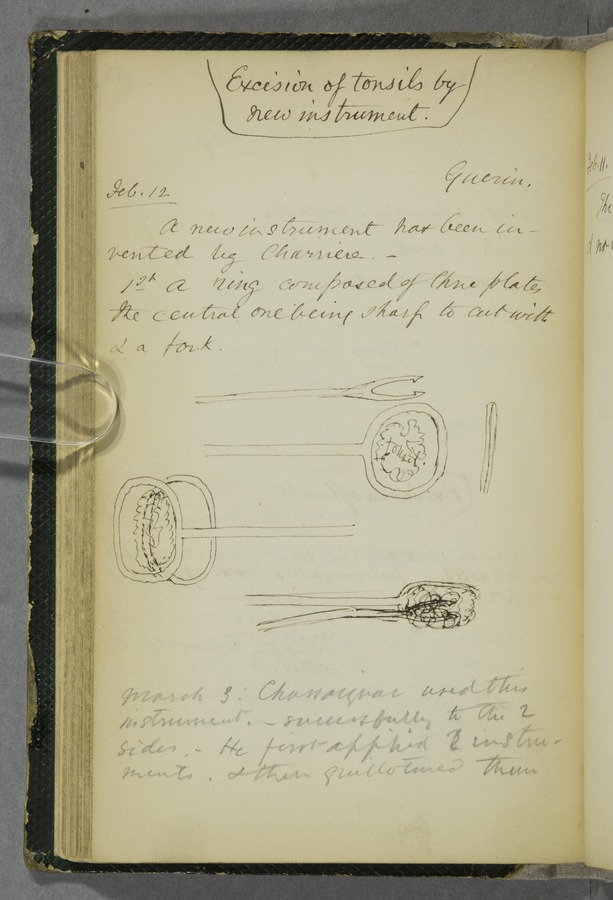 Excision of tonsils by
new instrument.
Guerin.
Feb. 12
A new instrument has been in-
vented by Charriere. -
1st a ring composed of three plates
the central one being sharp to cut with
& a fork.
tonsil.
March 3. Chassaignac used this
instrument. - successfully to the 2
sides. - He first applied 2 instru-
ments. & then guillotined them
Feb. 11.
The
& no